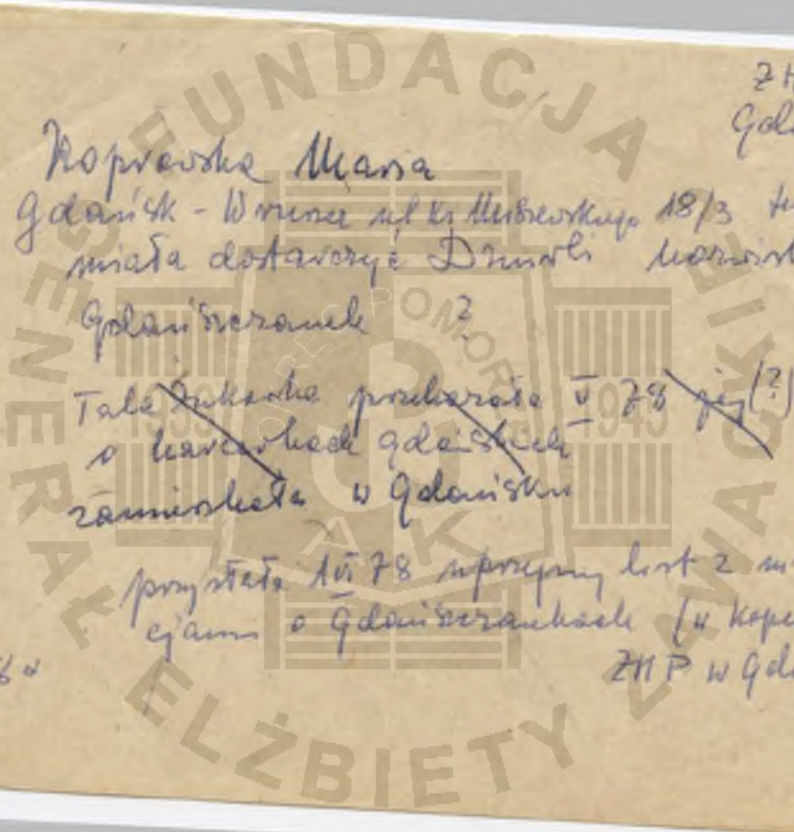 ZH
Gda
Koprowska Maria
Gdańsk - Wrzeszcz ul. Ks. 18/3
miała dostarczyć Drzwoli nazwisk
Gdańszczanek ?
Tala przekazała V 78 jej (?)
o harcerkach gdańskich
zamieszkała w Gdańsku
przysłała 1 VI 78 uprzejmy list z
cjami o Gdańszczankach (w kope
ZHP w Gda
FUNDACJA
GENERAŁ ELŻBIETY ZAWACKIEJ
1939 1945
AK